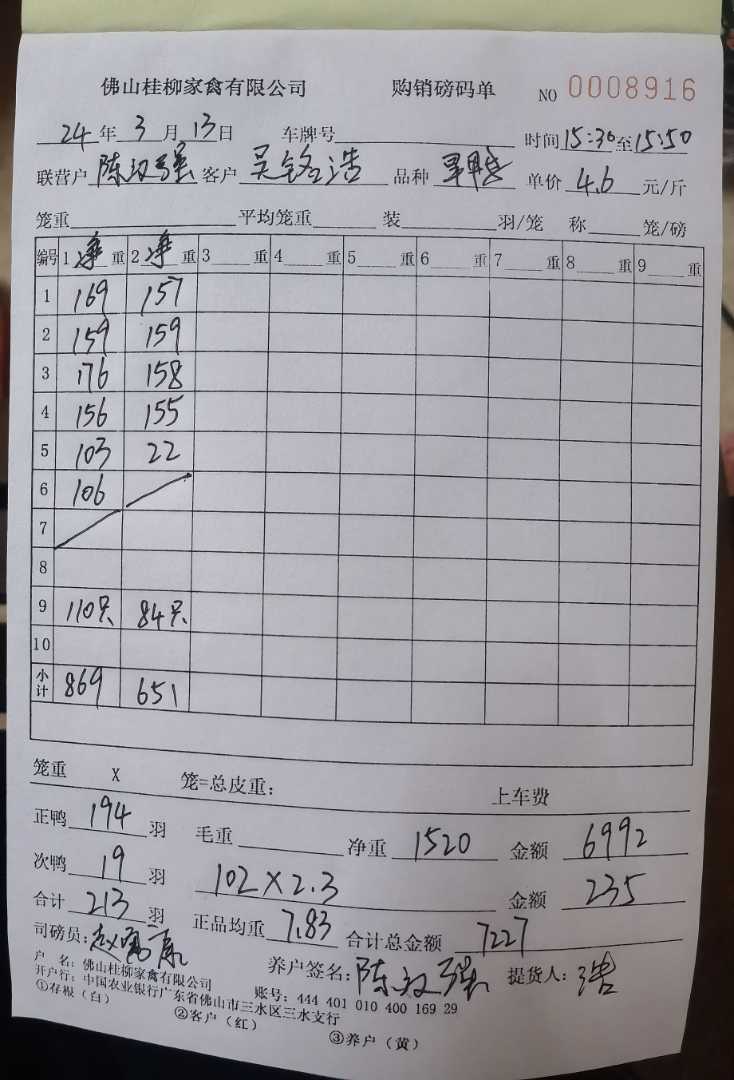 佛山桂柳家禽有限公司 购销磅码单 NO 0008916
24年3月13日 车牌号 时间15:30至15:50
联营户 陈汉强 客户 吴铭浩 品种 单价 4.6 元/斤
笼重 平均笼重 装 羽/笼 称 笼/磅
编号 1 净 重 2 净 重 3 重 4 重 5 重 6 重 7 重 8 重 9 重
1 169 157
2 159 159
3 176 158
4 156 155
5 103 22
6 106
7
8
9 110只 84只
10
小计 869 651
笼重 X 笼=总皮重: 上车费
正鸭 194 羽 毛重 净重 1520 金额 6992
次鸭 19 羽 102×2.3 金额 235
合计 213 羽 正品均重 7.83 合计总金额 7227
司磅员: 养户签名: 陈汉强 提货人: 浩
户 名: 佛山桂柳家禽有限公司
开户行: 中国农业银行广东省佛山市三水区三水支行 账号: 444 401 010 400 169 29
①存根(白) ②客户(红) ③养户(黄)